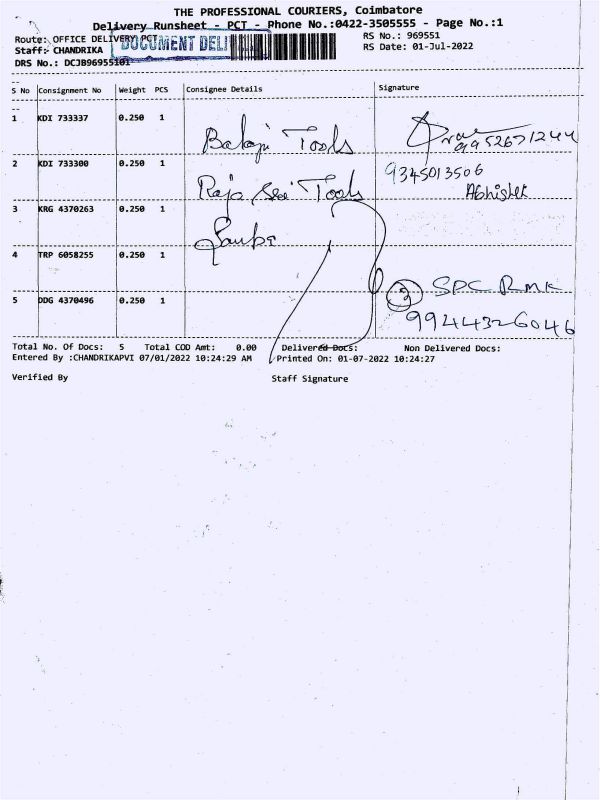 THE PROFESSIONAL COURIERS, Coimbatore
Delivery Runsheet - PCT - Phone No.:0422-3505555 - Page No.:1
Route: OFFICE DELIVERY PCT RS No.: 969551
DOCUMENT DELI
Staff: CHANDRIKA RS Date: 01-Jul-2022
DRS No.: DCJB96955101
S No Consignment No Weight PCS Consignee Details Signature
1 KDI 733337 0.250 1 Balaji Tools 9952671244
2 KDI 733300 0.250 1 Raja Sri Tools 9345013506 Abhishek
3 KRG 4370263 0.250 1
4 TRP 6058255 0.250 1
3 SPC RMK
5 DDG 4370496 0.250 1 99444326046
Total No. Of Docs: 5 Total COD Amt: 0.00 Delivered Docs: Non Delivered Docs:
Entered By :CHANDRIKAPVI 07/01/2022 10:24:29 AM Printed On: 01-07-2022 10:24:27
Verified By Staff Signature